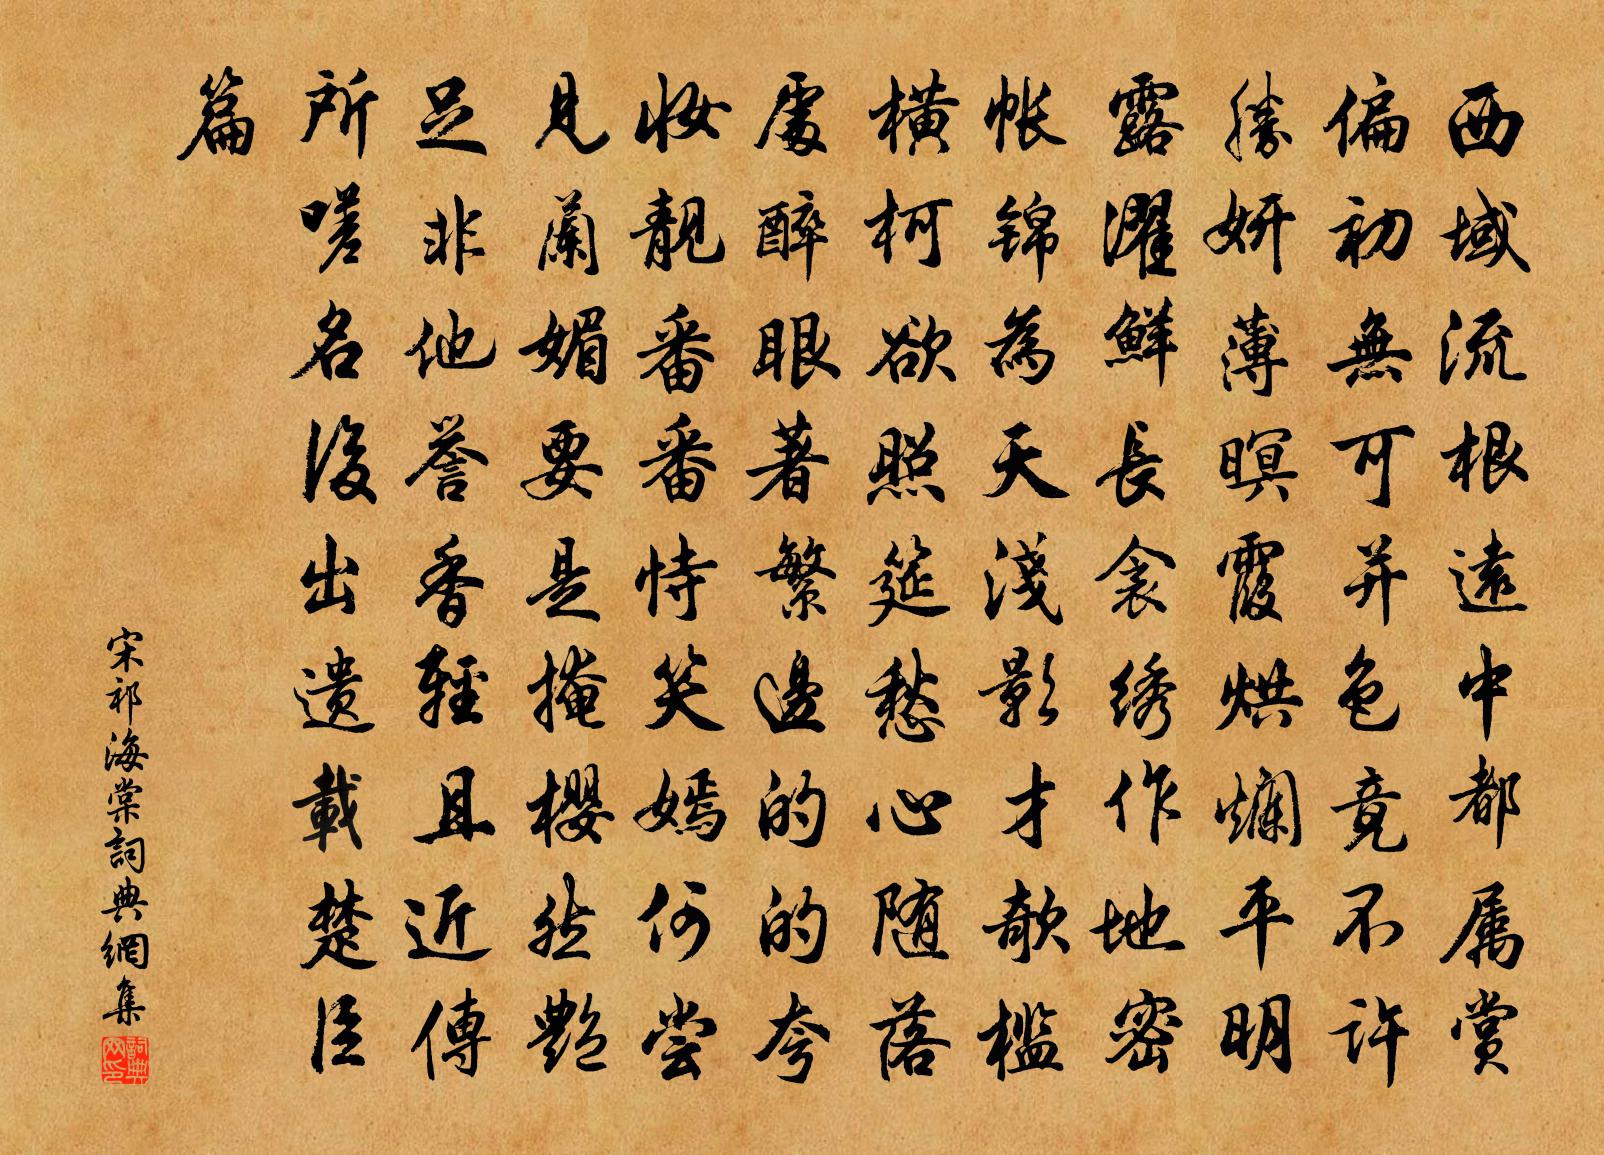 西域流根遠中都属赏
偏初無可并色竟不许
勝妍薄暝霞烘爛平明
露濯鲜長衾绣作地密
帐锦為天淺影才欹槛
横柯欲照筵愁心随落
處醉眼著繁邊的的夸
妆靓番番恃笑嫣何尝
見蘭媚要是掩櫻然艷
足非他誉香輕且近傳
所嗟名後出遗載楚臣
篇
宋祁海棠詞典網集
詞典网印